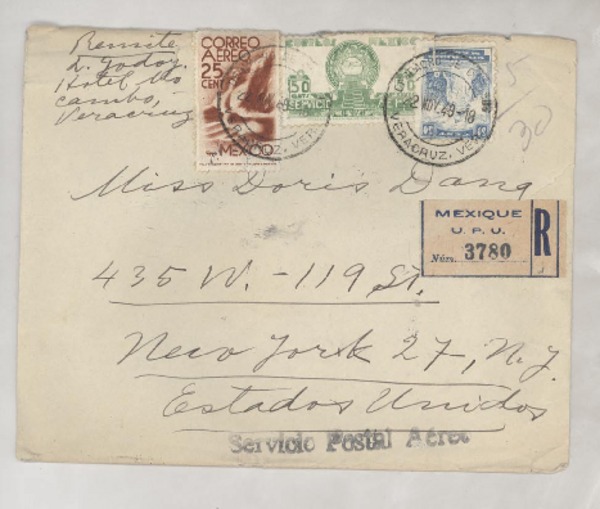 Remite
L. Godoy.
Hotel Mo
cambo,
Veracruz
CORREO
AEREO
25
CENT
MEXICO
50
50
SERVICIO
22 NOV. 49-18
VERACRUZ, VER.
5
30
Miss Doris Dana
MEXIQUE
U. P. U.
Núm. 3780
R
435 W. - 119 St.
New York 27-, N. Y.
Estados Unidos
Servicio Postal Aéreo